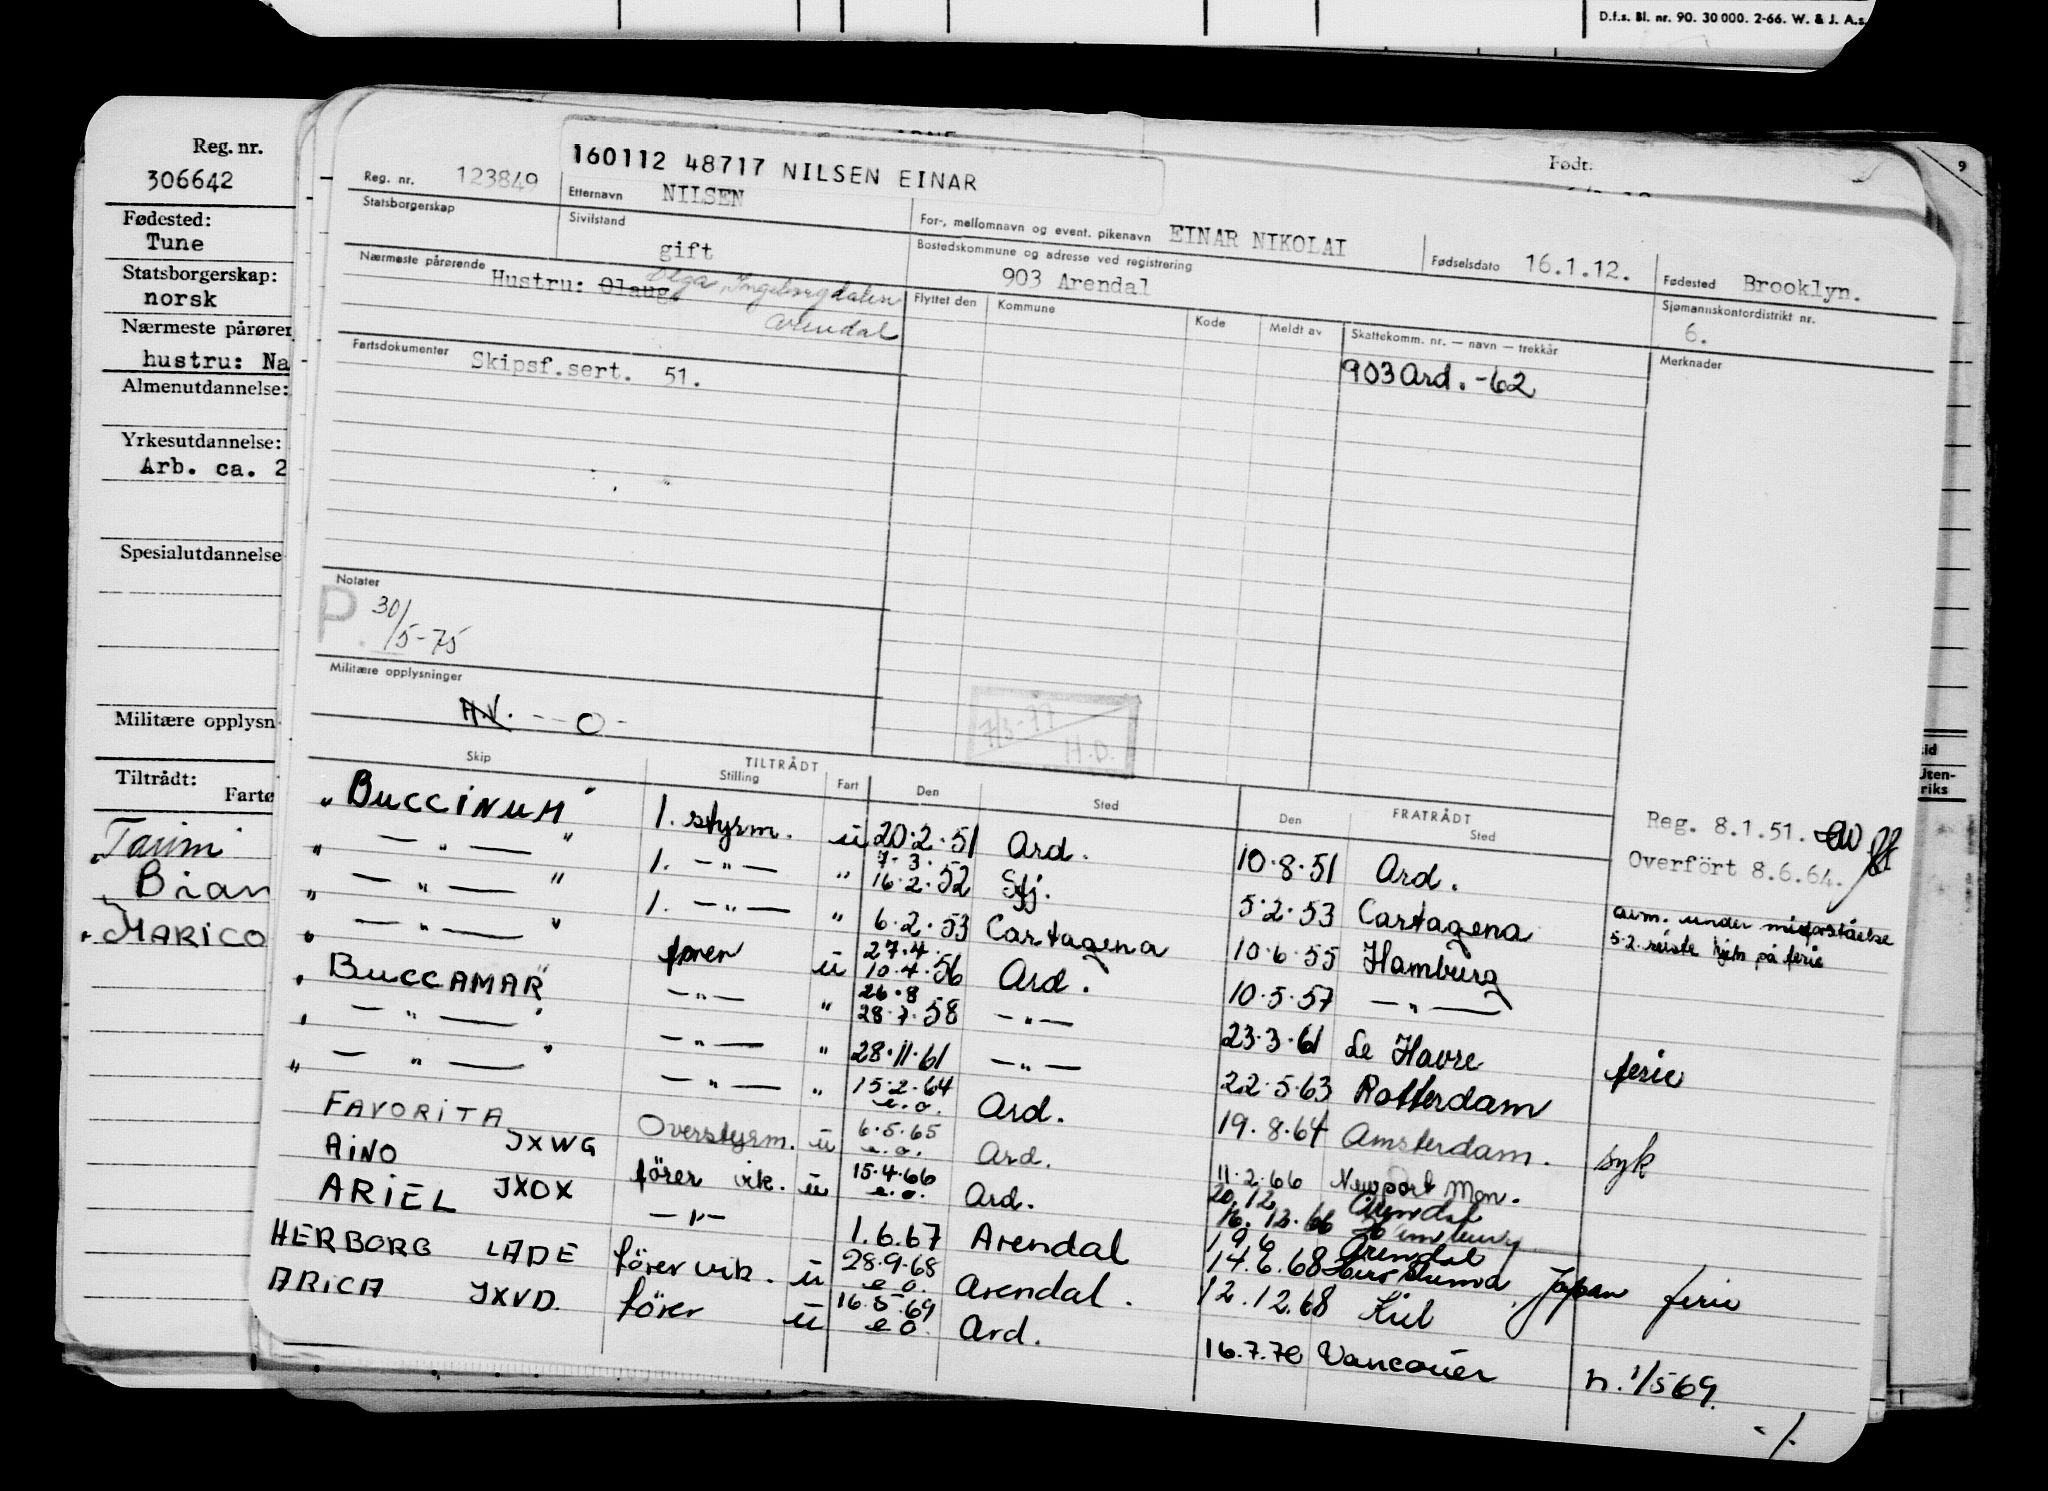 D.f.s. Bl. nr. 90. 30 000. 2-66. W. & J. A.s.
Reg. nr.
306642
Fødested:
Tune
Statsborgerskap:
norsk
Nærmeste pårører
hustru: Na
Almenutdannelse:
Yrkesutdannelse:
Arb. ca. 2
Spesialutdannelse
Militære opplysn
Tiltrådt:
Fartø
Taimi
Bian
MARICO
Født:
9
160112 48717 NILSEN EINAR
Reg. nr. 123849
Etternavn NILSEN
For-, mellomnavn og event. pikenavn EINAR NIKOLAI
Fødselsdato 16.1.12.
Fødested Brooklyn.
Statsborgerskap
Sivilstand gift
Bostedskommune og adresse ved registrering
903 Arendal
Sjømannskontordistrikt nr.
6.
Nærmeste pårørende
Hustru: Olaug Olga, Ingeborgdalen
Arendal
Flyttet den Kommune Kode Meldt av Skattekomm. nr. — navn — trekkår
903 Ard. -62
Merknader
Fartsdokumenter Skipsf.sert. 51.
Notater
P. 30/5-75
Militære opplysninger
H.V. - - O -
7/3-77
H.O.
Skip TILTRÅDT Stilling Fart Den Sted Den FRATRÅDT Sted
Reg. 8.1.51.
Overført 8.6.64.
"BUCCINUM" 1. styrm. u 20.2.51 Ard. 10.8.51 Ard.
" — " — " 1. — " — " 7.3. 16.2.52 Sfj. 5.2.53 Cartagena avm. under misforståelse
5.2. reiste hjem på ferie
" — " — " 1. — " — " 6.2.53 Cartagena 10.6.55 Hamburg
" — " — " fører u 27.4. 10.4.56 Ard. 10.5.57 — " —
" BUCCAMAR " — " — " 26.8 28.7.58 — " — 23.3.61 Le Havre ferie
" — " — " — " — " 28.11.61 — " — 22.5.63 Rotterdam
" — " — " — " — " 15.2.64 e.o. Ard. 19.8.64 Amsterdam. syk
FAVORITA JXWG Overstyrm. u 6.5.65 e.o. Ard. 11.2.66 Newport Mon.
AINO JXOX fører vik. u 15.4.66 e.o. Ard. 20.12 Arendal
16.12.66
ARIEL — " — 1.6.67 Arendal 19.6 Arendal
14.6.68 Japan ferie
HERBORG LADE fører vik. u 28.9.68 e.o. Arendal. 12.12.68 Kiel
ARICA JXVD. fører u 16.5.69 e.o. Ard. 16.7.70 Vancouver n. 1/5 69.
-/.
sid
Uten-
riks